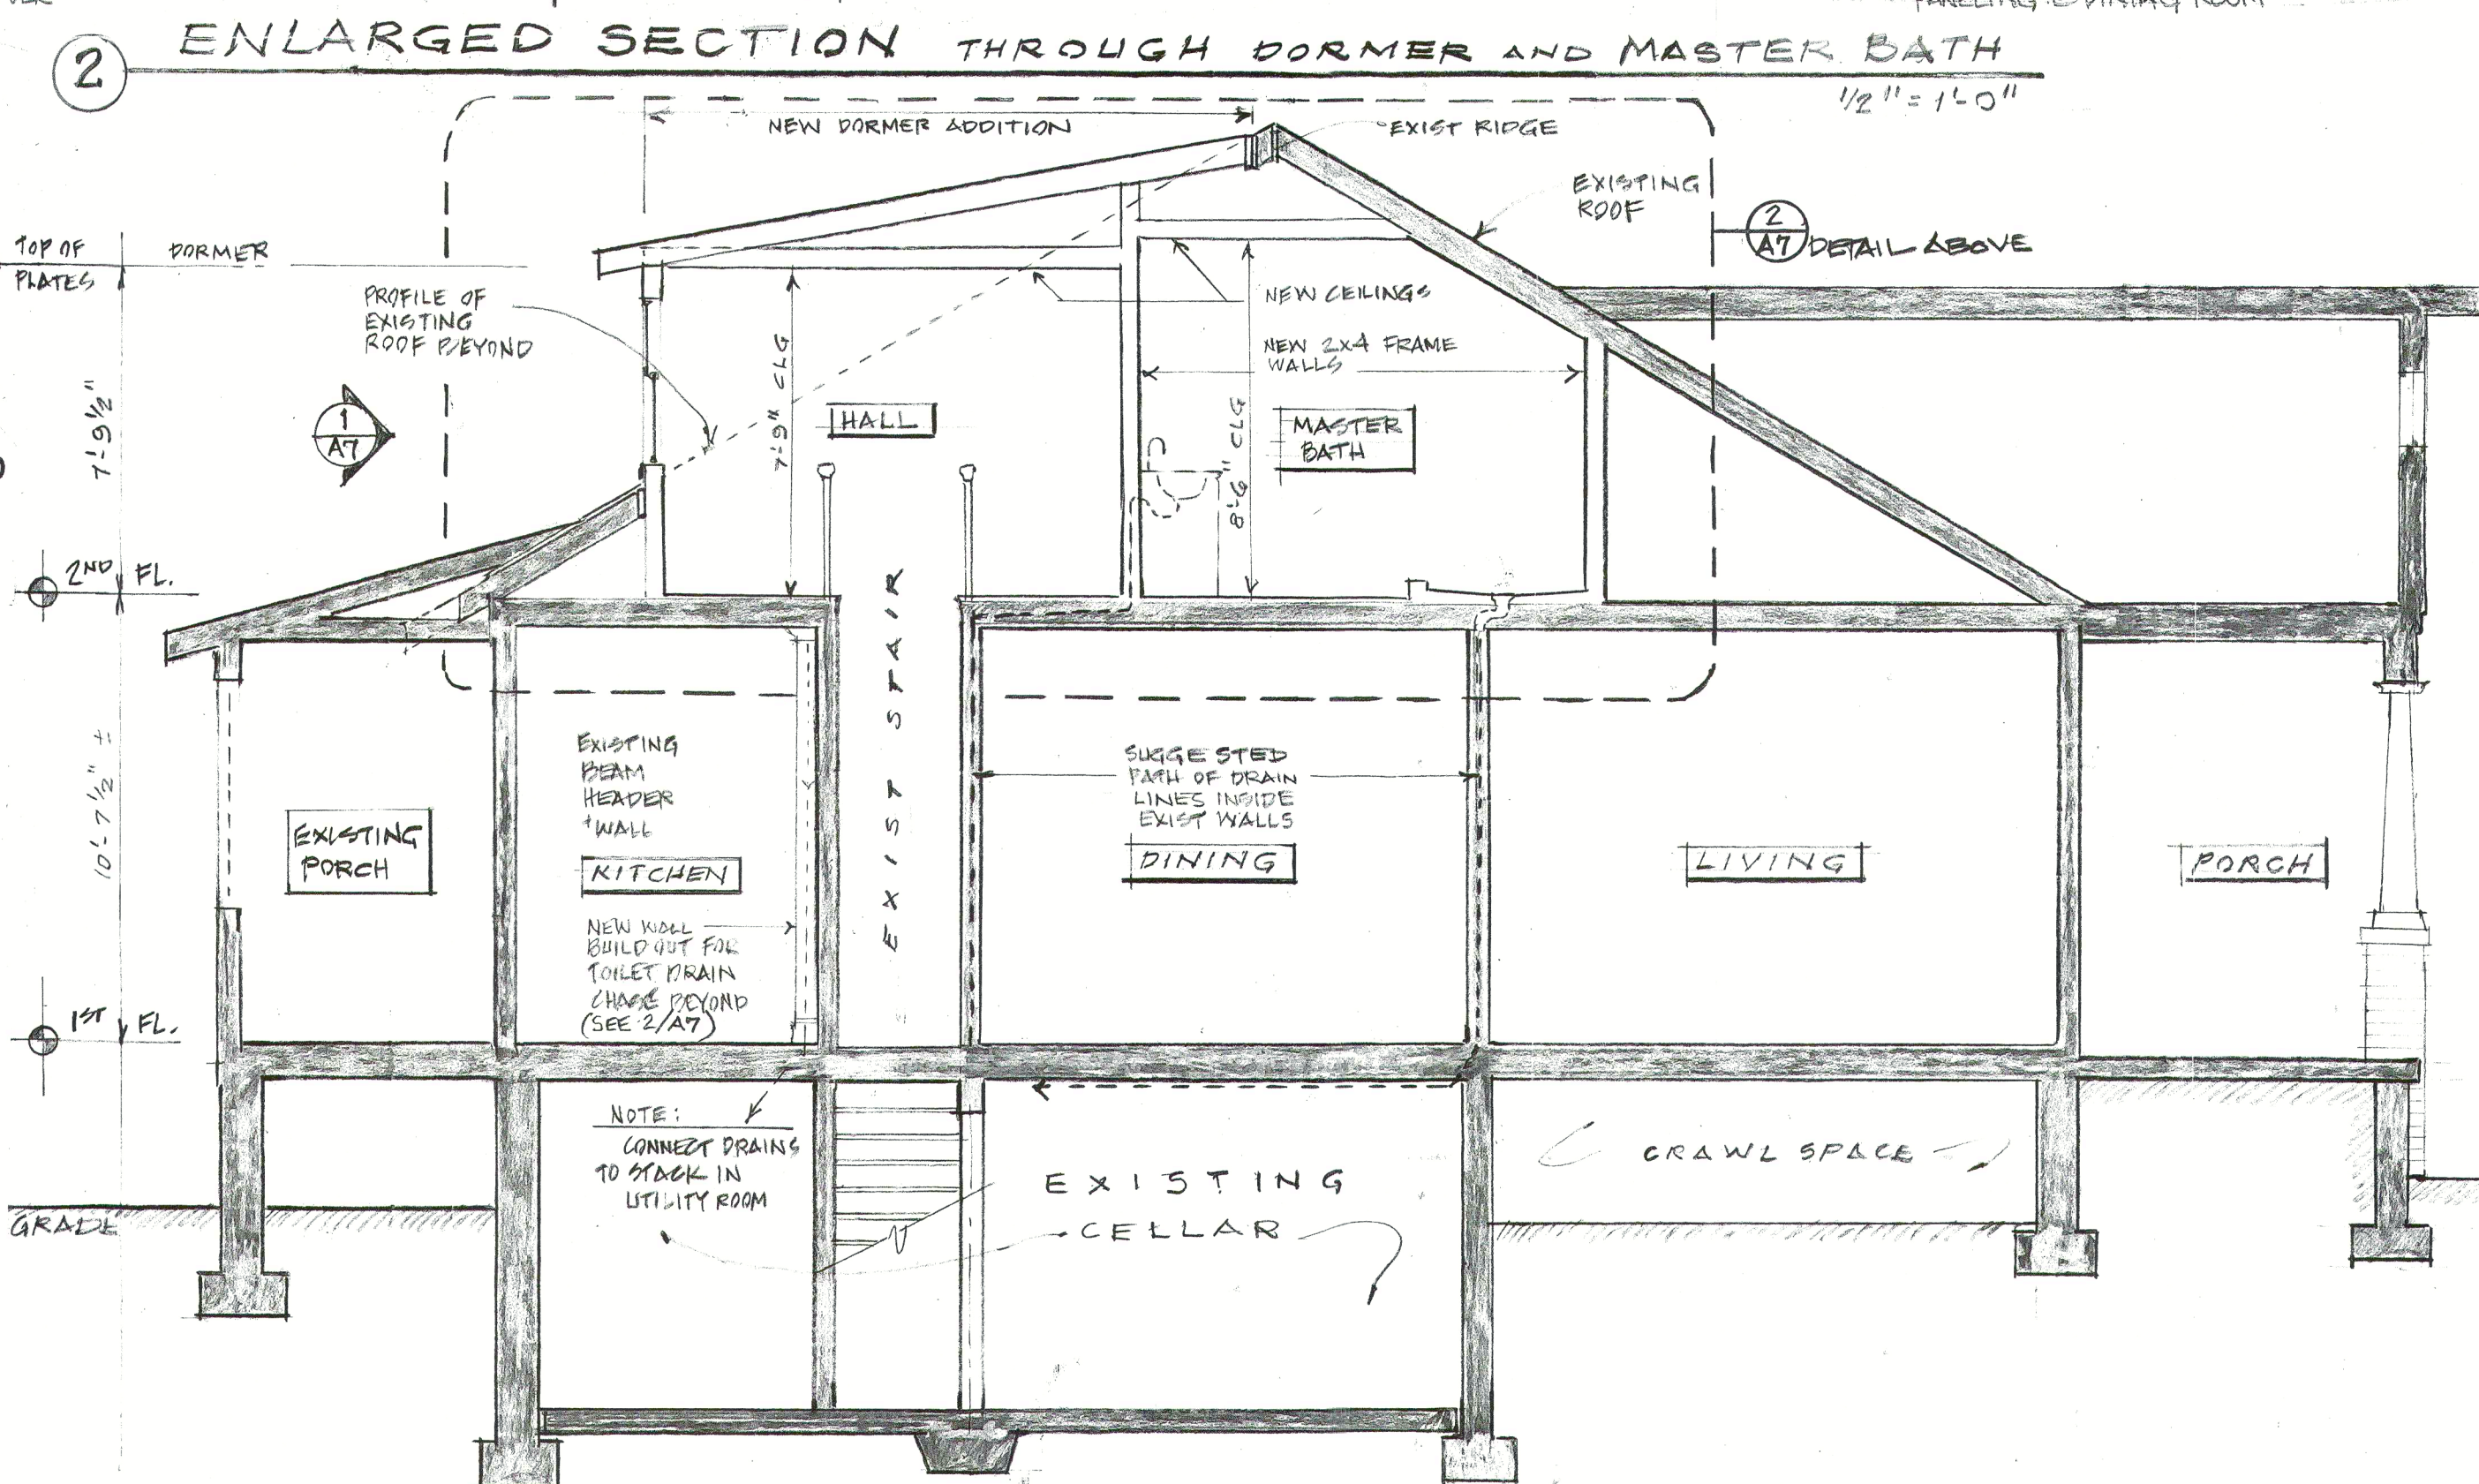 PANELING @ DINING ROOM
2 ENLARGED SECTION THROUGH DORMER AND MASTER BATH
1/2" = 1'-0"
NEW DORMER ADDITION
EXIST RIDGE
EXISTING
ROOF
2
A7
DETAIL ABOVE
TOP OF
PLATES
DORMER
PROFILE OF
EXISTING
ROOF BEYOND
NEW CEILINGS
NEW 2x4 FRAME
WALLS
7'-9 1/2"
1
A7
7'-9" CLG
HALL
8'-6" CLG
MASTER
BATH
2ND FL.
EXIST STAIR
10'-7 1/2" ±
EXISTING
PORCH
EXISTING
BEAM
HEADER
+WALL
KITCHEN
NEW WALL
BUILD OUT FOR
TOILET DRAIN
CHASE BEYOND
(SEE 2/A7)
SUGGESTED
PATH OF DRAIN
LINES INSIDE
EXIST WALLS
DINING
LIVING
PORCH
1ST FL.
NOTE:
CONNECT DRAINS
TO STACK IN
UTILITY ROOM
EXISTING
CELLAR
CRAWL SPACE
GRADE